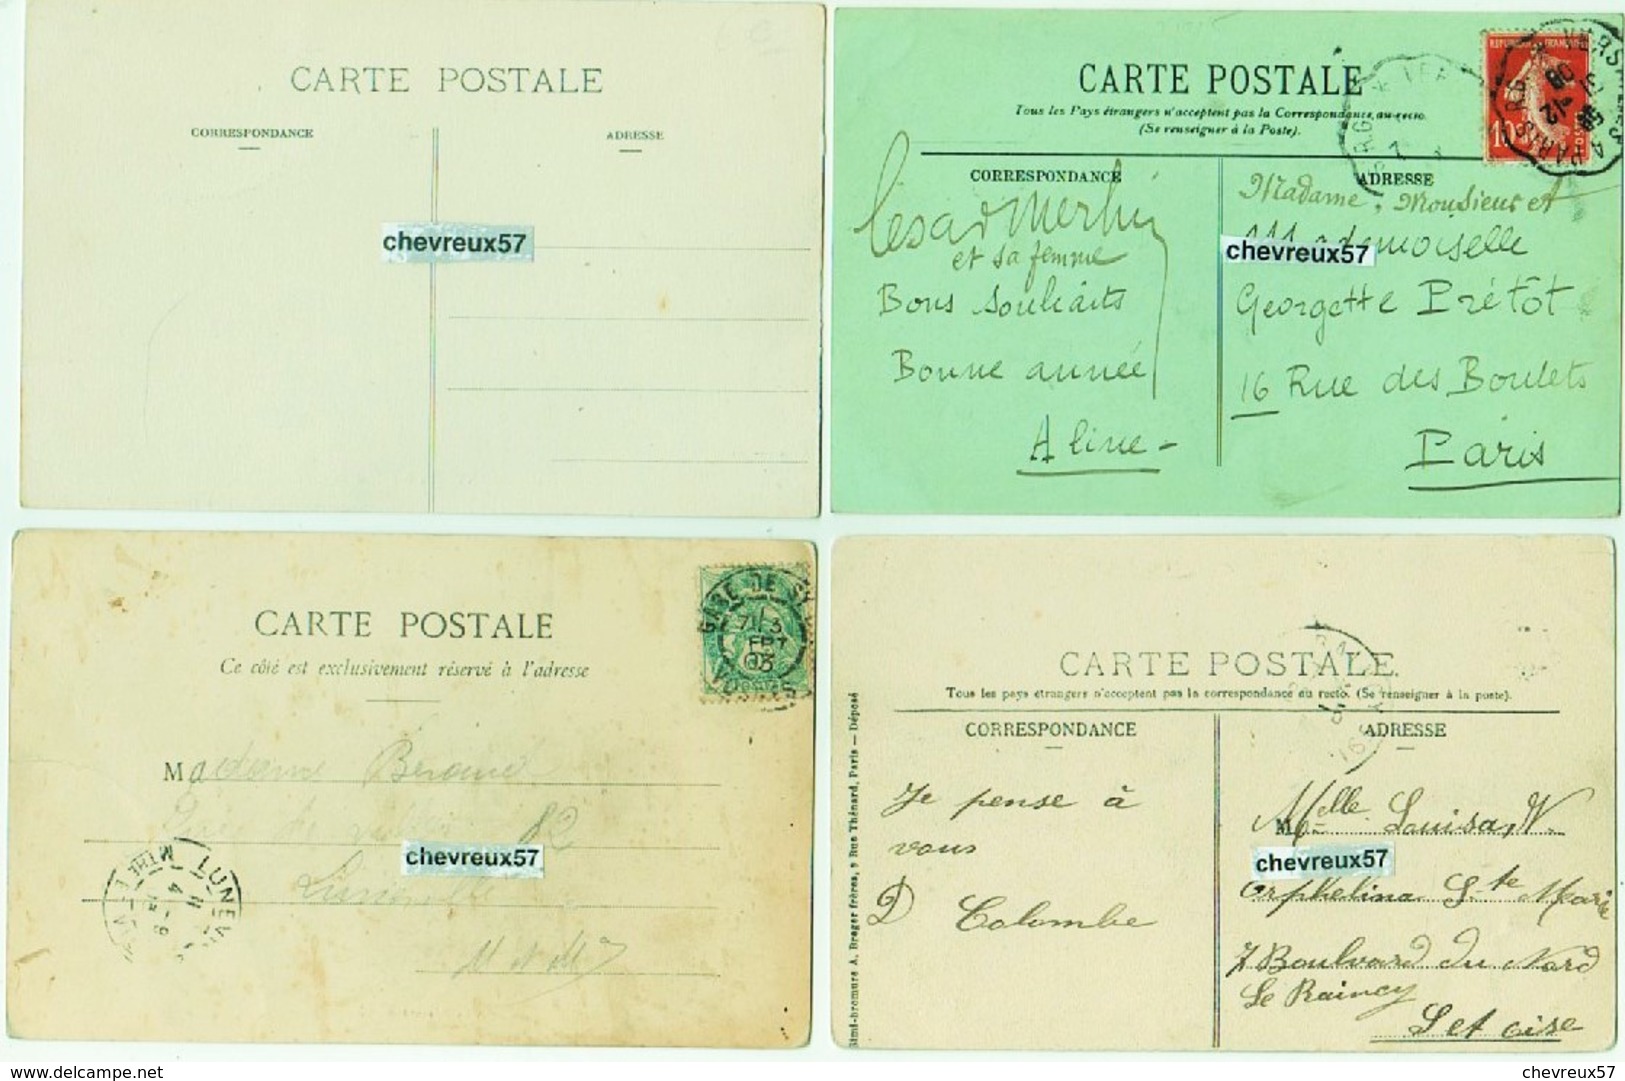 CARTE POSTALE
CORRESPONDANCE
ADRESSE
chevreux57
CARTE POSTALE
Tous les Pays étrangers n'acceptent pas la Correspondance au recto.
(Se renseigner à la Poste).
CORRESPONDANCE
ADRESSE
et sa femme
Bons souhaits
Bonne année
Aline
Madame, Monsieur et
Mademoiselle
chevreux57
Georgette Prétôt
16 Rue des Boulets
Paris
CARTE POSTALE
Ce côté est exclusivement réservé à l'adresse
GARE DE
7/3
SEPT
03
VOSGES
Madame Beraud
82
chevreux57
Lunéville
M et M
CARTE POSTALE
Tous les pays étrangers n'acceptent pas la correspondance au recto. (Se renseigner à la poste).
CORRESPONDANCE
ADRESSE
Simi-bromure A. Breger frères, 9 Rue Thénard, Paris — Déposé
Je pense à
vous
D Colombe
Melle Louisa W.
chevreux57
Orphelina Ste Marie
7 Boulvard du Nord
Le Raincy
S et Oise
www.delcampe.net
chevreux57